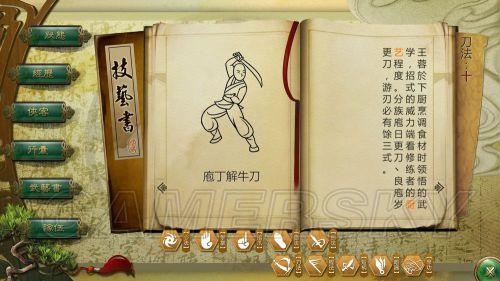 狀態
經歷
俠客
行囊
武藝書
隊伍
技藝書
庖丁解牛刀
刀法：十
王蓉於下厨烹调食材时领悟的武
学，招式的威力端看修练者的厨
艺程度。分族庖日更刀、良庖岁
更刀，游刃必有馀三式。
GAMERSKY